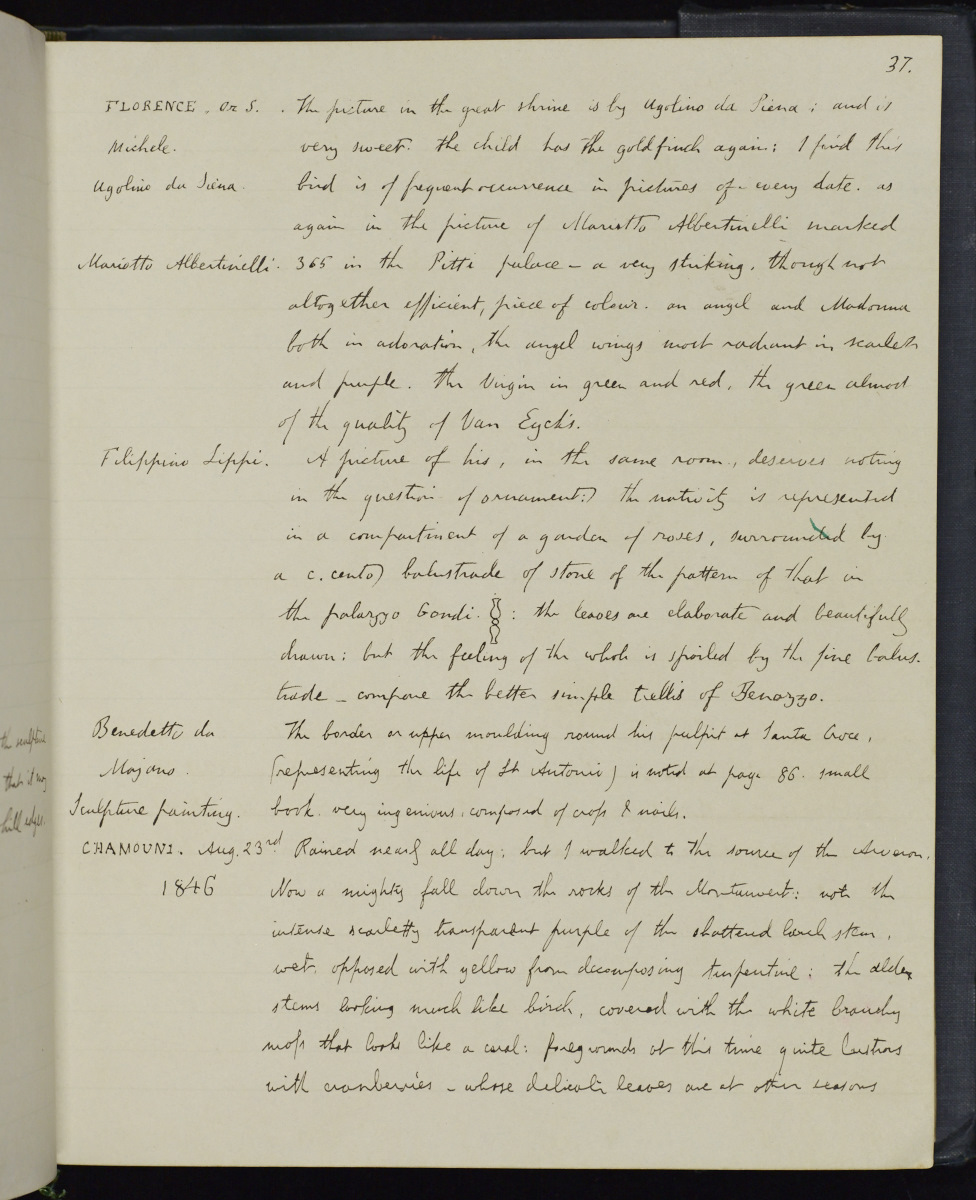 37.
FLORENCE. Or S. . The picture in the great shrine is by Ugolino da Siena; and is
Michele. very sweet. the child has the goldfinch again; I find this
Ugolino da Siena. bird is of frequent occurrence in pictures of every date. as
again in the picture of Mariotto Albertinelli marked
Mariotto Albertinelli. 365 in the Pitti palace – a very striking, though not
altogether efficient, piece of colour. an angel and Madonna
both in adoration, the angel wings most radiant in scarlet
and purple. the Virgin in green and red, the green almost
of the quality of Van Eyck's.
Filippino Lippi. A picture of his, in the same room, deserves noting
in the question of ornament:) the nativity is represented
in a compartment of a garden of roses, surrounded by
a c.cento) balustrade of stone of the pattern of that in
the palazzo Gondi. : the leaves are elaborate and beautifully
drawn: but the feeling of the whole is spoiled by the fine balus-
trade – compare the better simple trellis of Benozzo.
Benedetto da The border or upper moulding round his pulpit at Santa Croce,
Majano. (representing the life of St Antonio) is noted at page 86. small
Sculpture painting. book. very ingenious, composed of cross & nails.
CHAMOUNI. Aug. 23rd Rained nearly all day; but I walked to the source of the Arveron.
1846 Now a mighty fall down the rocks of the Montanvert: note the
intense scarletty transparent purple of the shattered larch stem,
wet, opposed with yellow from decomposing turpentine: the alder
stems looking much like birch, covered with the white branchy
moss that looks like a coral: foregrounds at this time quite lustrous
with cranberries – whose delicate leaves are at other seasons
the sculpture
that it may